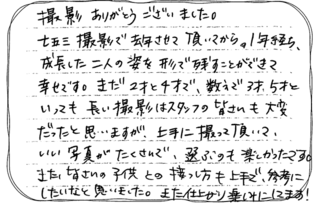 撮影 ありがとうございました。
七五三撮影で去年させて頂いてから、1年経ち、
成長した二人の姿を形で残すことができて
幸せです。まだ2才と4才で、数えで3才、5才と
いっても長い撮影はスタッフの皆さいも大変
だったと思いますが、上手に撮って頂いて、
いい写真がたくさんで、選ぶのも楽しかったです。
また、皆さいの子供との接し方も上手で、参考に
したいなと思いました。また仕上がり楽しみにしてます!